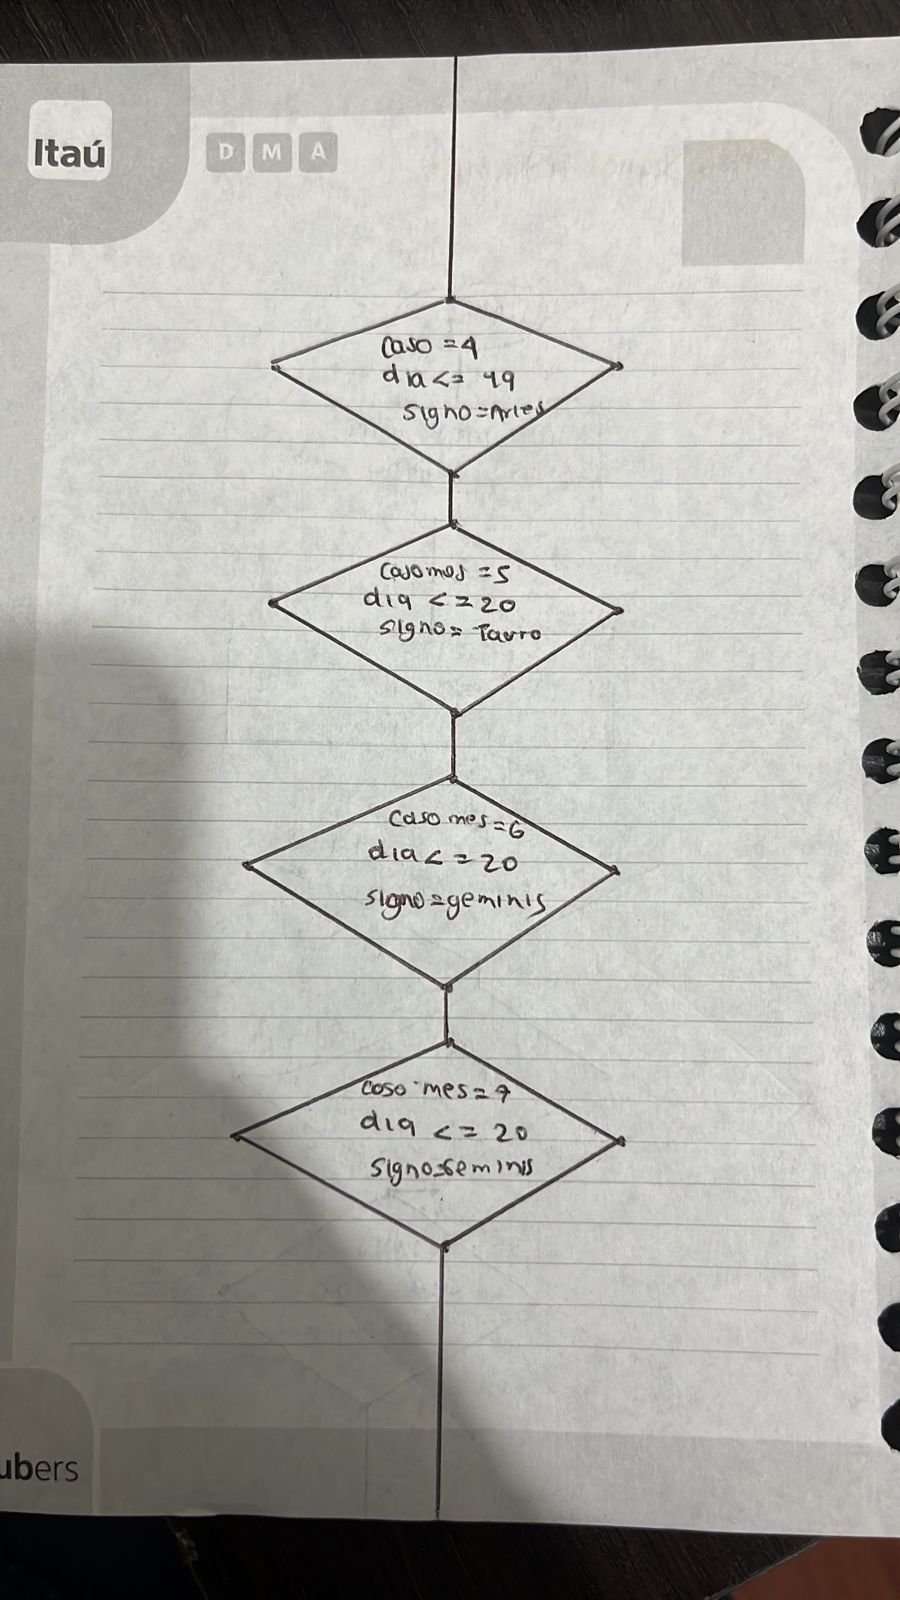 Itaú
D M A
Caso = 4
dia <= 19
signo = Aries
Caso mes = 5
dia <= 20
signo = Tauro
Caso mes = 6
dia <= 20
signo = geminis
Caso mes = 7
dia <= 20
signo = Geminis
ubers